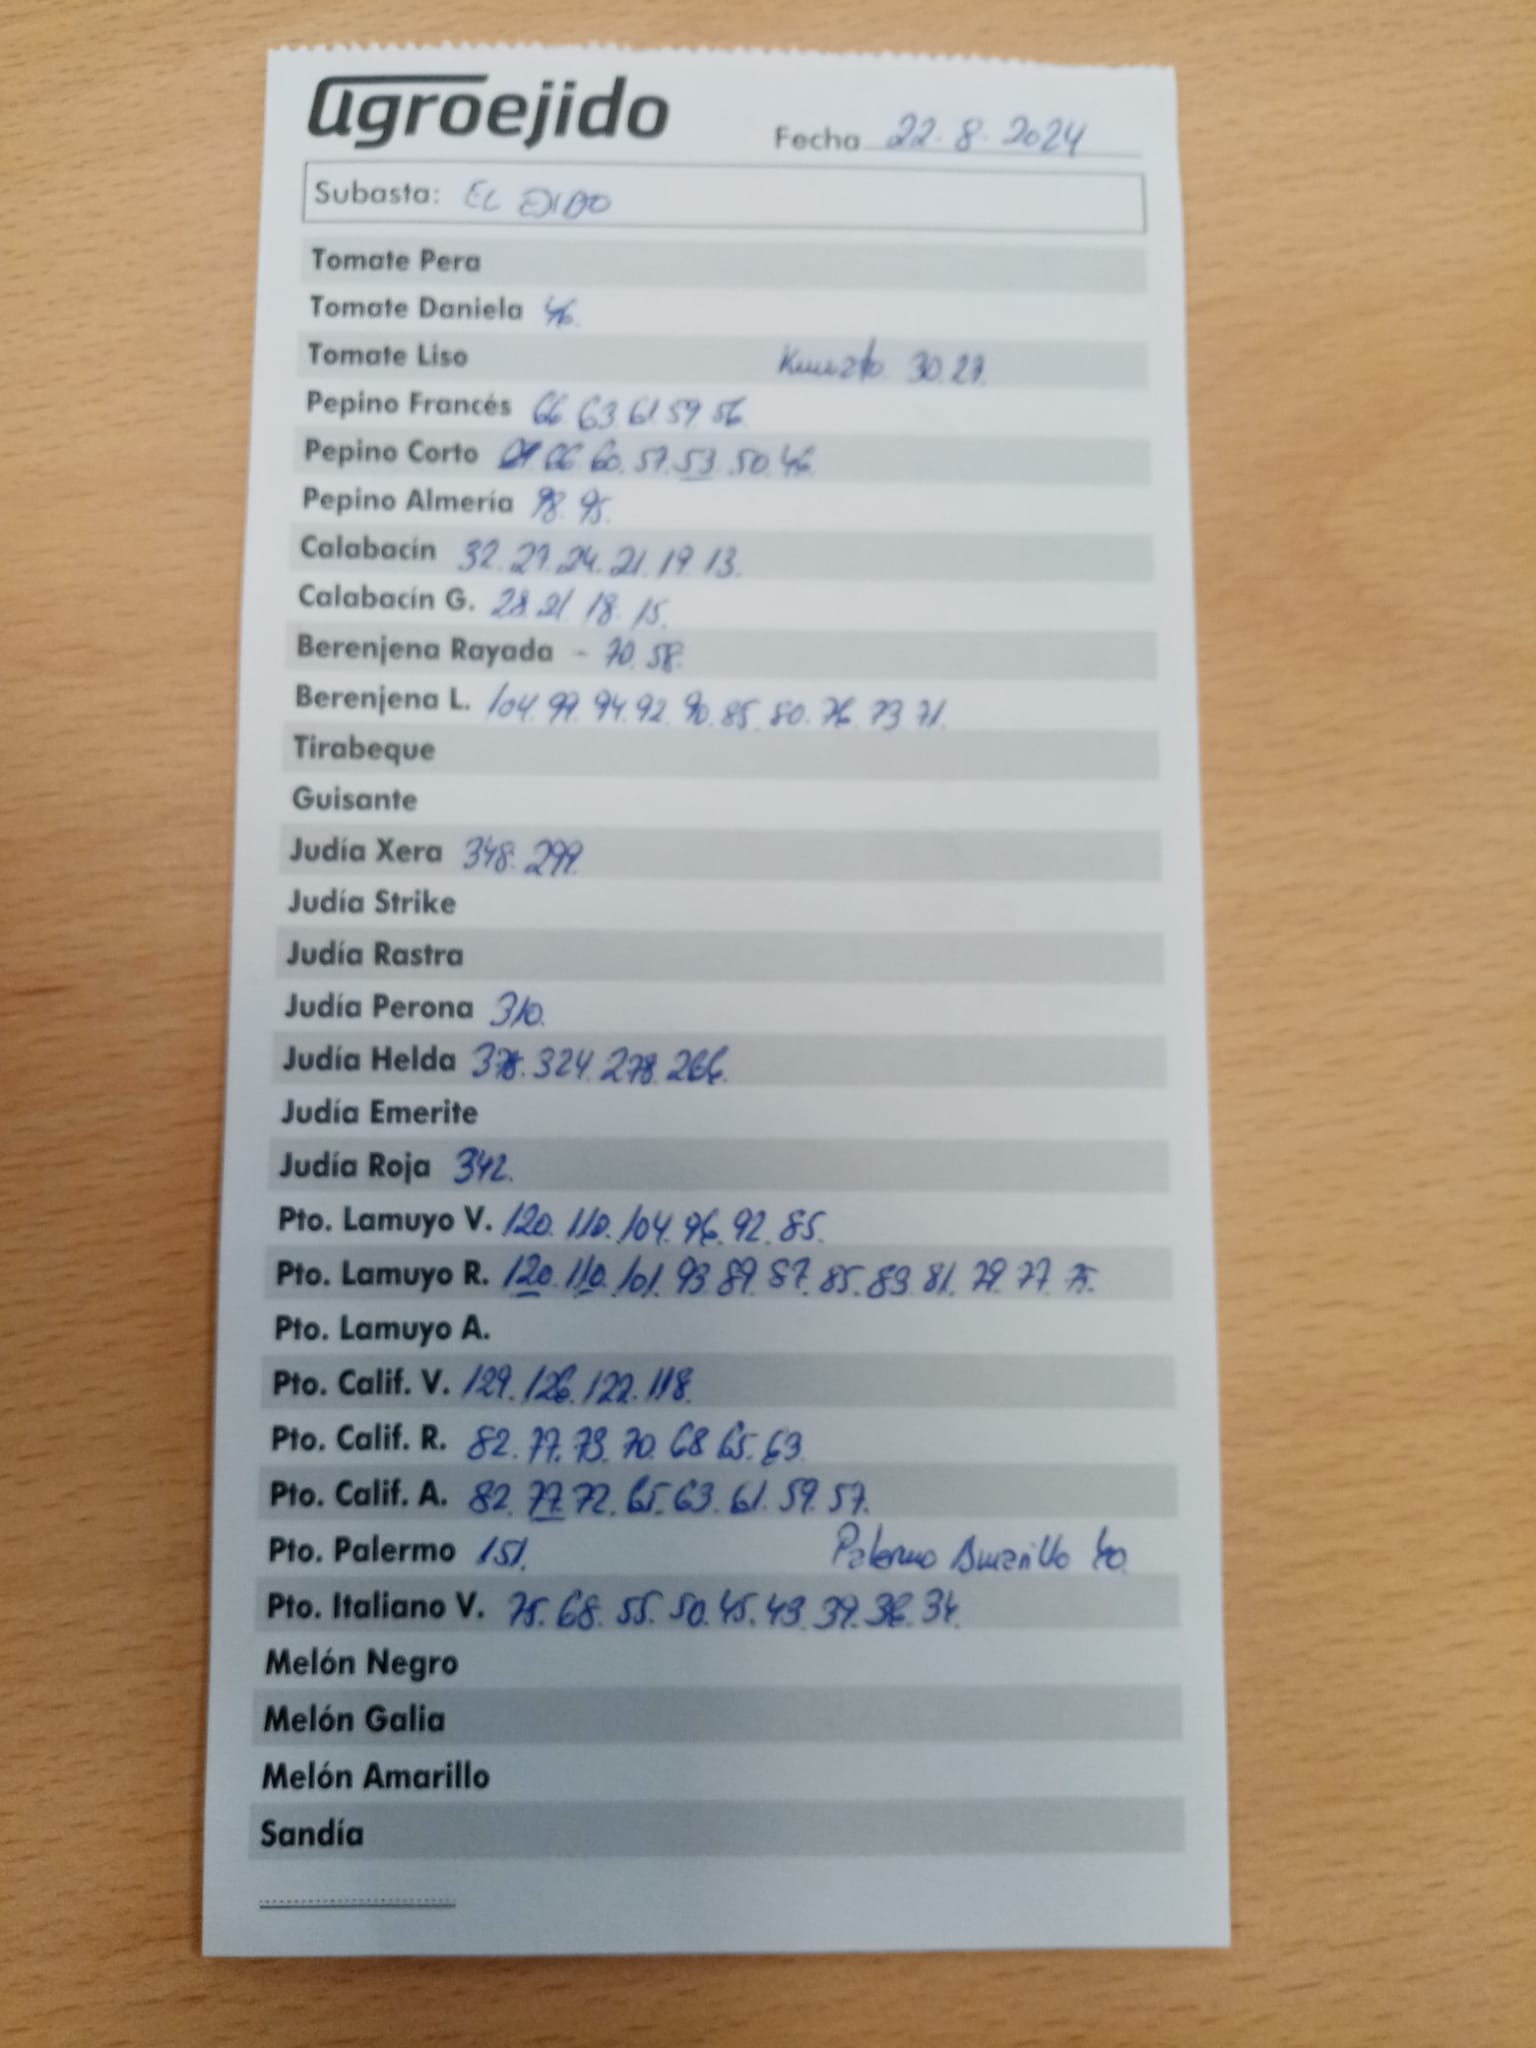 agroejido
Fecha 22.8.2024
Subasta: EL EJIDO
Tomate Pera
Tomate Daniela 46.
Tomate Liso 30.27.
Pepino Francés 66.63.61.59.56.
Pepino Corto 66.60.57.53.50.46.
Pepino Almería 98.95.
Calabacín 32.27.24.21.19.13.
Calabacín G. 28.21.18.15.
Berenjena Rayada - 70.58.
Berenjena L. 104.99.94.92.90.85.80.76.73.71.
Tirabeque
Guisante
Judía Xera 348.299.
Judía Strike
Judía Rastra
Judía Perona 310.
Judía Helda 378.324.278.266.
Judía Emerite
Judía Roja 342.
Pto. Lamuyo V. 120.110.104.96.92.85.
Pto. Lamuyo R. 120.110.101.93.89.87.85.83.81.79.77.75.
Pto. Lamuyo A.
Pto. Calif. V. 129.126.122.118.
Pto. Calif. R. 82.77.73.70.68.65.63.
Pto. Calif. A. 82.77.72.65.63.61.59.57.
Pto. Palermo 151. Palermo Amarillo
Pto. Italiano V. 75.68.55.50.45.43.39.36.34.
Melón Negro
Melón Galia
Melón Amarillo
Sandía